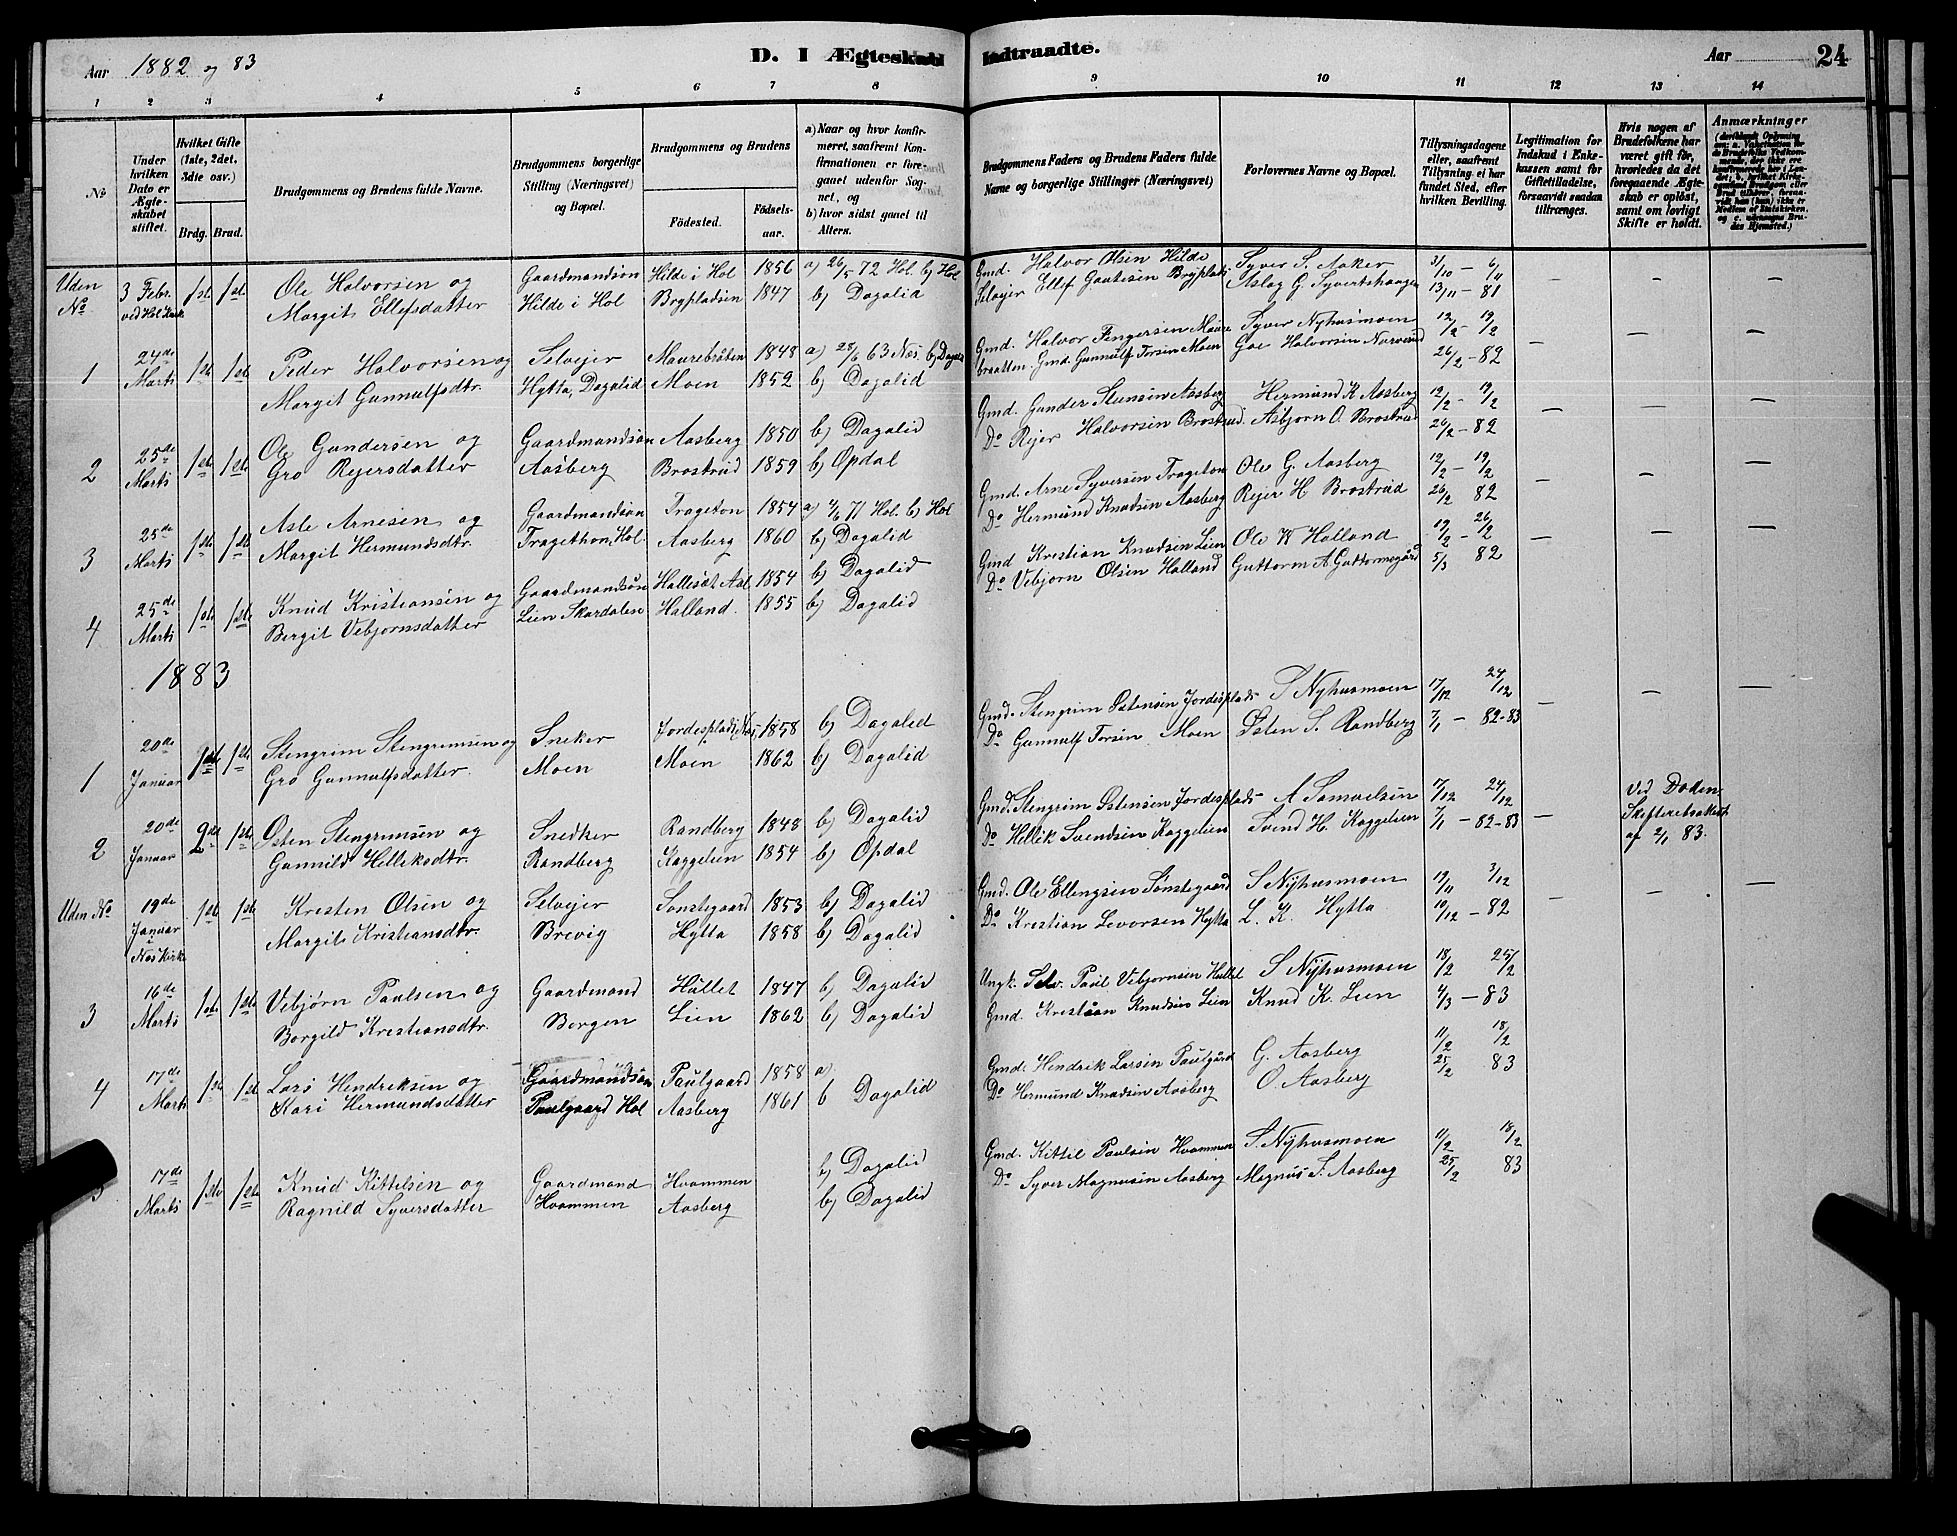 Aar 1882 og 83
D. I Ægteskab Indtraadte.
Aar 24
1 2 3 4 5 6 7 8 9 10 11 12 13 14
No
Under hvilken Dato er Ægteskabet stiftet.
Hvilket Gifte (1ste, 2det, 3die osv.)
Brdg. Brud.
Brudgommens og Brudens fulde Navne.
Brudgommens borgerlige Stilling (Næringsvei) og Bopæl.
Brudgommens og Brudens
Födested. Födsels-aar.
a) Naar og hvor konfirmeret, saafremt Konfirmationen er foregaaet udenfor Sognet, og
b) hvor sidst gaaet til Alters.
Brudgommens Faders og Brudens Faders fulde Navne og borgerlige Stillinger (Næringsvei)
Forlovernes Navne og Bopæl.
Tillysningsdagene eller, saafremt Tillysning ei har fundet Sted, efter hvilken Bevilling.
Legitimation for Indskud i Enkekassen samt for Giftetilladelse, forsaavidt saadan tiltrænges.
Hvis nogen af Brudefolkene har været gift för, hvorledes da det foregaaende Ægteskab er oplöst, samt om lovligt Skifte er holdt.
Anmærkninger
Uden No 3 Febr. ved Hol Kirk 1ste 1ste
Ole Halvorsen og Gaardmandsön Hilde i Hol 1856 a) 26/5 72 Hol. b) Hol
Margit Ellefsdatter Hilde i Hol Brypladsen 1847 b) Dagalid
Gmd. Halvor Olsen Hilde Syver S. Aaker 31/10 – 6/11
Selvejer Ellef Gaatisen Bryplads Aslag G. Syvertshaugen 13/11 – 81
1 24de Marts 1ste 1ste
Peder Halvorsen og Selvejer Maurebråten 1848 a) 28/6 63 Næs. b) Dagalid
Margit Gunnulfsdtr. Hytta, Dagalid Moen 1852 b) Dagalid
Gmd. Halvor Fingersen Maure Syver Nyhusmoen 12/2 – 19/2
braatten. Gmd. Gunnulf Torsen Moen Goe Halvorsen Nærerud 26/2 – 82
2 25de Marts 1ste 1ste
Ole Gundersen og Gaardmandsön Aasberg 1850 b) Dagalid
Gro Rejersdatter Aasberg Brostrud 1859 b) Opdal
Gmd. Gunder Stensen Aasberg Hermund K Aasberg 12/2 – 19/2
Do Rejer Halvorsen Brostrud. Asbjorn O. Brostrud 26/2 – 82
3 25de Marts 1ste 1ste
Asle Arnesen og Gaardmandsön Trageton 1854 a) 4/6 71 Hol. b) Hol
Margit Hermundsdtr. Tragethon, Hol. Aasberg 1860 b) Dagalid
Gmd. Arne Syversen Trageton Ole G. Aasberg 12/2 – 19/2
Do Hermund Knudsen Aasberg Rejer H Brostrud 26/2 82
4 25de Marts 1ste 1ste
Knud Kristiansen og Gaardmandsön Hallesæt Aal 1854 b) Dagalid
Bergit Vebjornsdatter Lien Skurdalen Halland. 1855 b) Dagalid
Gmd Krestian Knudsen Lien Ole K Halland 19/2 – 26/2
Do Vebjorn Olsen Halland Guttorm A Guttormsgård 5/3 82
1883
1 20de Januar 1ste 1ste
Stengrim Stengrimsen og Sneker Jordesplads, Næs, 1858 b) Dagalid
Gro Gunnulfsdatter. Moen Moen 1862 b) Dagalid
Gmd. Stengrim Østensen Jordesplads S Nyhusmoen 17/12 24/12
Do Gunnulf Torsen Moen Østen S. Randberg 7/1 – 82-83
2 20de Januar 2de 1ste
Østen Stengrimsen og Snedker Randberg 1848 b) Dagalid
Gunnild Helleksdtr. Randberg Kaggelien 1854 b) Opdal
Gmd. Stengrim Østensen Jordesplads A Samuelsen 17/12 24/12
Do Hellik Svendsen Kaggelien Svend H. Kaggelien 7/1 – 82-83
Ved Døden
Skifteretsakst
af 2/1 83.
Uden No 19de Januar i Næs Kirk 1ste 1ste
Kresten Olsen og Selvejer Sønstegaard 1853 b) Dagalid
Margit Kristiansdtr. Brevig Hytta 1858 b) Dagalid
Gmd. Ole Ellengsen Sønstegaard S Nyhusmoen 19/11 3/12
Do Krestian Levorsen Hytta L. K. Hytta 10/12 – 82
3 16de Marts 1ste 1ste
Vebjørn Paulsen og Gaardmand Hullet 1847 b) Dagalid
Borgild Krestiansdtr. Borgen Lien 1862 b) Dagalid
Ungk. Selv. Paul Vebjornsen Hullet S Nyhusmoen 18/2 25/2
Gmd. Krestian Knudsen Lien Knud K. Lien 4/3 – 83
4 17de Marts 1ste 1ste
Lars Hendriksen og Gaardmandsön Paulgaard 1858 a)
Kari Hermundsdatter Paulgaard Hol Aasberg 1861 b Dagalid
Gmd. Hendrik Larsen Paulgård G. Aasberg 11/2 18/2
Do Hermund Knudsen Aasberg O. Aasberg 25/2 83
5 17de Marts 1ste 1ste
Knud Kittelsen og Gaardmand Hvammen b) Dagalid
Ragnild Syversdatter Hvammen Aasberg b) Dagalid
Gmd. Kittil Paulsen Hvammen S. Nyhusmoen 11/2 18/2
Do Syver Magnusen Aasberg Magnus S. Aasberg 25/2 83